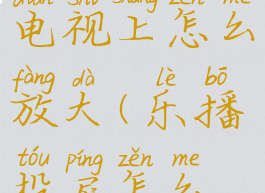 diàn shì shàng zěn me
电视上怎么
fàng dà lè bō
放大(乐播
tóu píng zěn me
投屏怎么